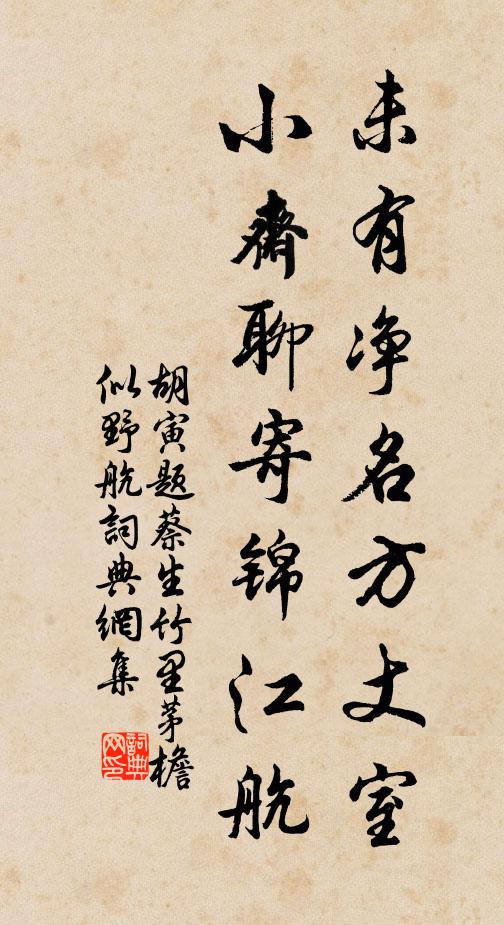 未有净名方丈室
小齋聊寄锦江航
胡寅题蔡生竹里茅檐
似野航詞典網集
詞典网印